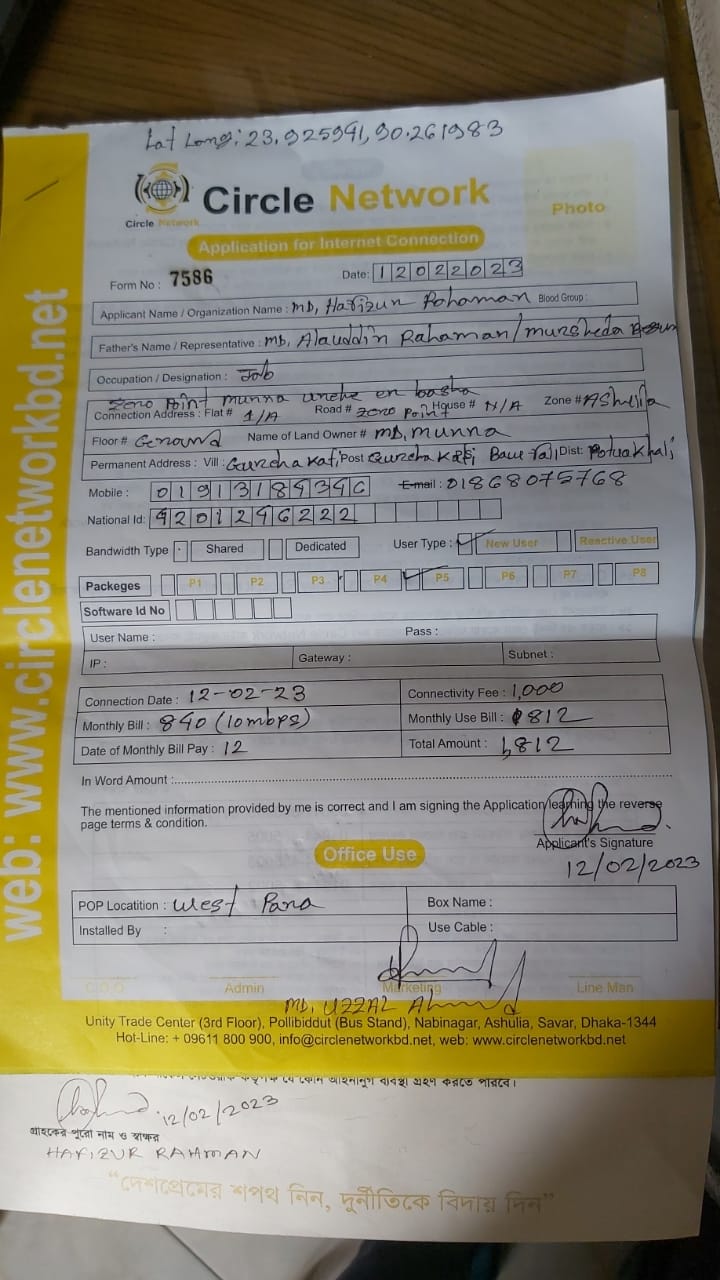 Lat Long: 23.925941, 90.261983
Circle Network
Circle Network
Photo
Application for Internet Connection
Form No : 7586
Date: 12022023
Applicant Name / Organization Name : MD, Hafizun Rohaman Blood Group :
Father's Name / Representative : MD, Alauddin Rahaman/
Occupation / Designation : Job
Zero Point munna
Connection Address : Flat # 1/A Road # Zero Point House # N/A Zone # AShulia
Floor # Geround Name of Land Owner # MD, munna
Permanent Address : Vill : Post Dist: Potuakhali
Mobile : E-mail : 01868075768
National Id: 4201296222
Bandwidth Type Shared Dedicated User Type : New User Reactive User
Packeges P1 P2 P3 P4 P5 P6 P7 P8
Software Id No
User Name : Pass :
IP : Gateway : Subnet :
Connection Date : 12-02-23 Connectivity Fee : 1,000
Monthly Bill : 840 (10mbps) Monthly Use Bill : 812
Date of Monthly Bill Pay : 12 Total Amount : 1,812
In Word Amount :
The mentioned information provided by me is correct and I am signing the Application learning the reverse
page terms & condition.
Applicant's Signature
12/02/2023
Office Use
POP Locatition : West Para Box Name :
Installed By : Use Cable :
C.O.O Admin Marketing Line Man
MD. UZZAL Ahmed
Unity Trade Center (3rd Floor), Pollibiddut (Bus Stand), Nabinagar, Ashulia, Savar, Dhaka-1344
Hot-Line: + 09611 800 900, info@circlenetworkbd.net, web: www.circlenetworkbd.net
web: www.circlenetworkbd.net
যে কোন আইনানুগ ব্যবস্থা গ্রহণ করতে পারবে।
12/02/2023
গ্রাহকের পুরো নাম ও স্বাক্ষর
HAFIZUR RAHMAN
“দেশপ্রেমের শপথ নিন, দুর্নীতিকে বিদায় দিন”